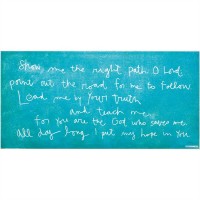 Show me the right path O Lord
point out the road for me to follow
Lead me by Your truth
and teach me
for You are the God who saves me
all day long I put my hope in You